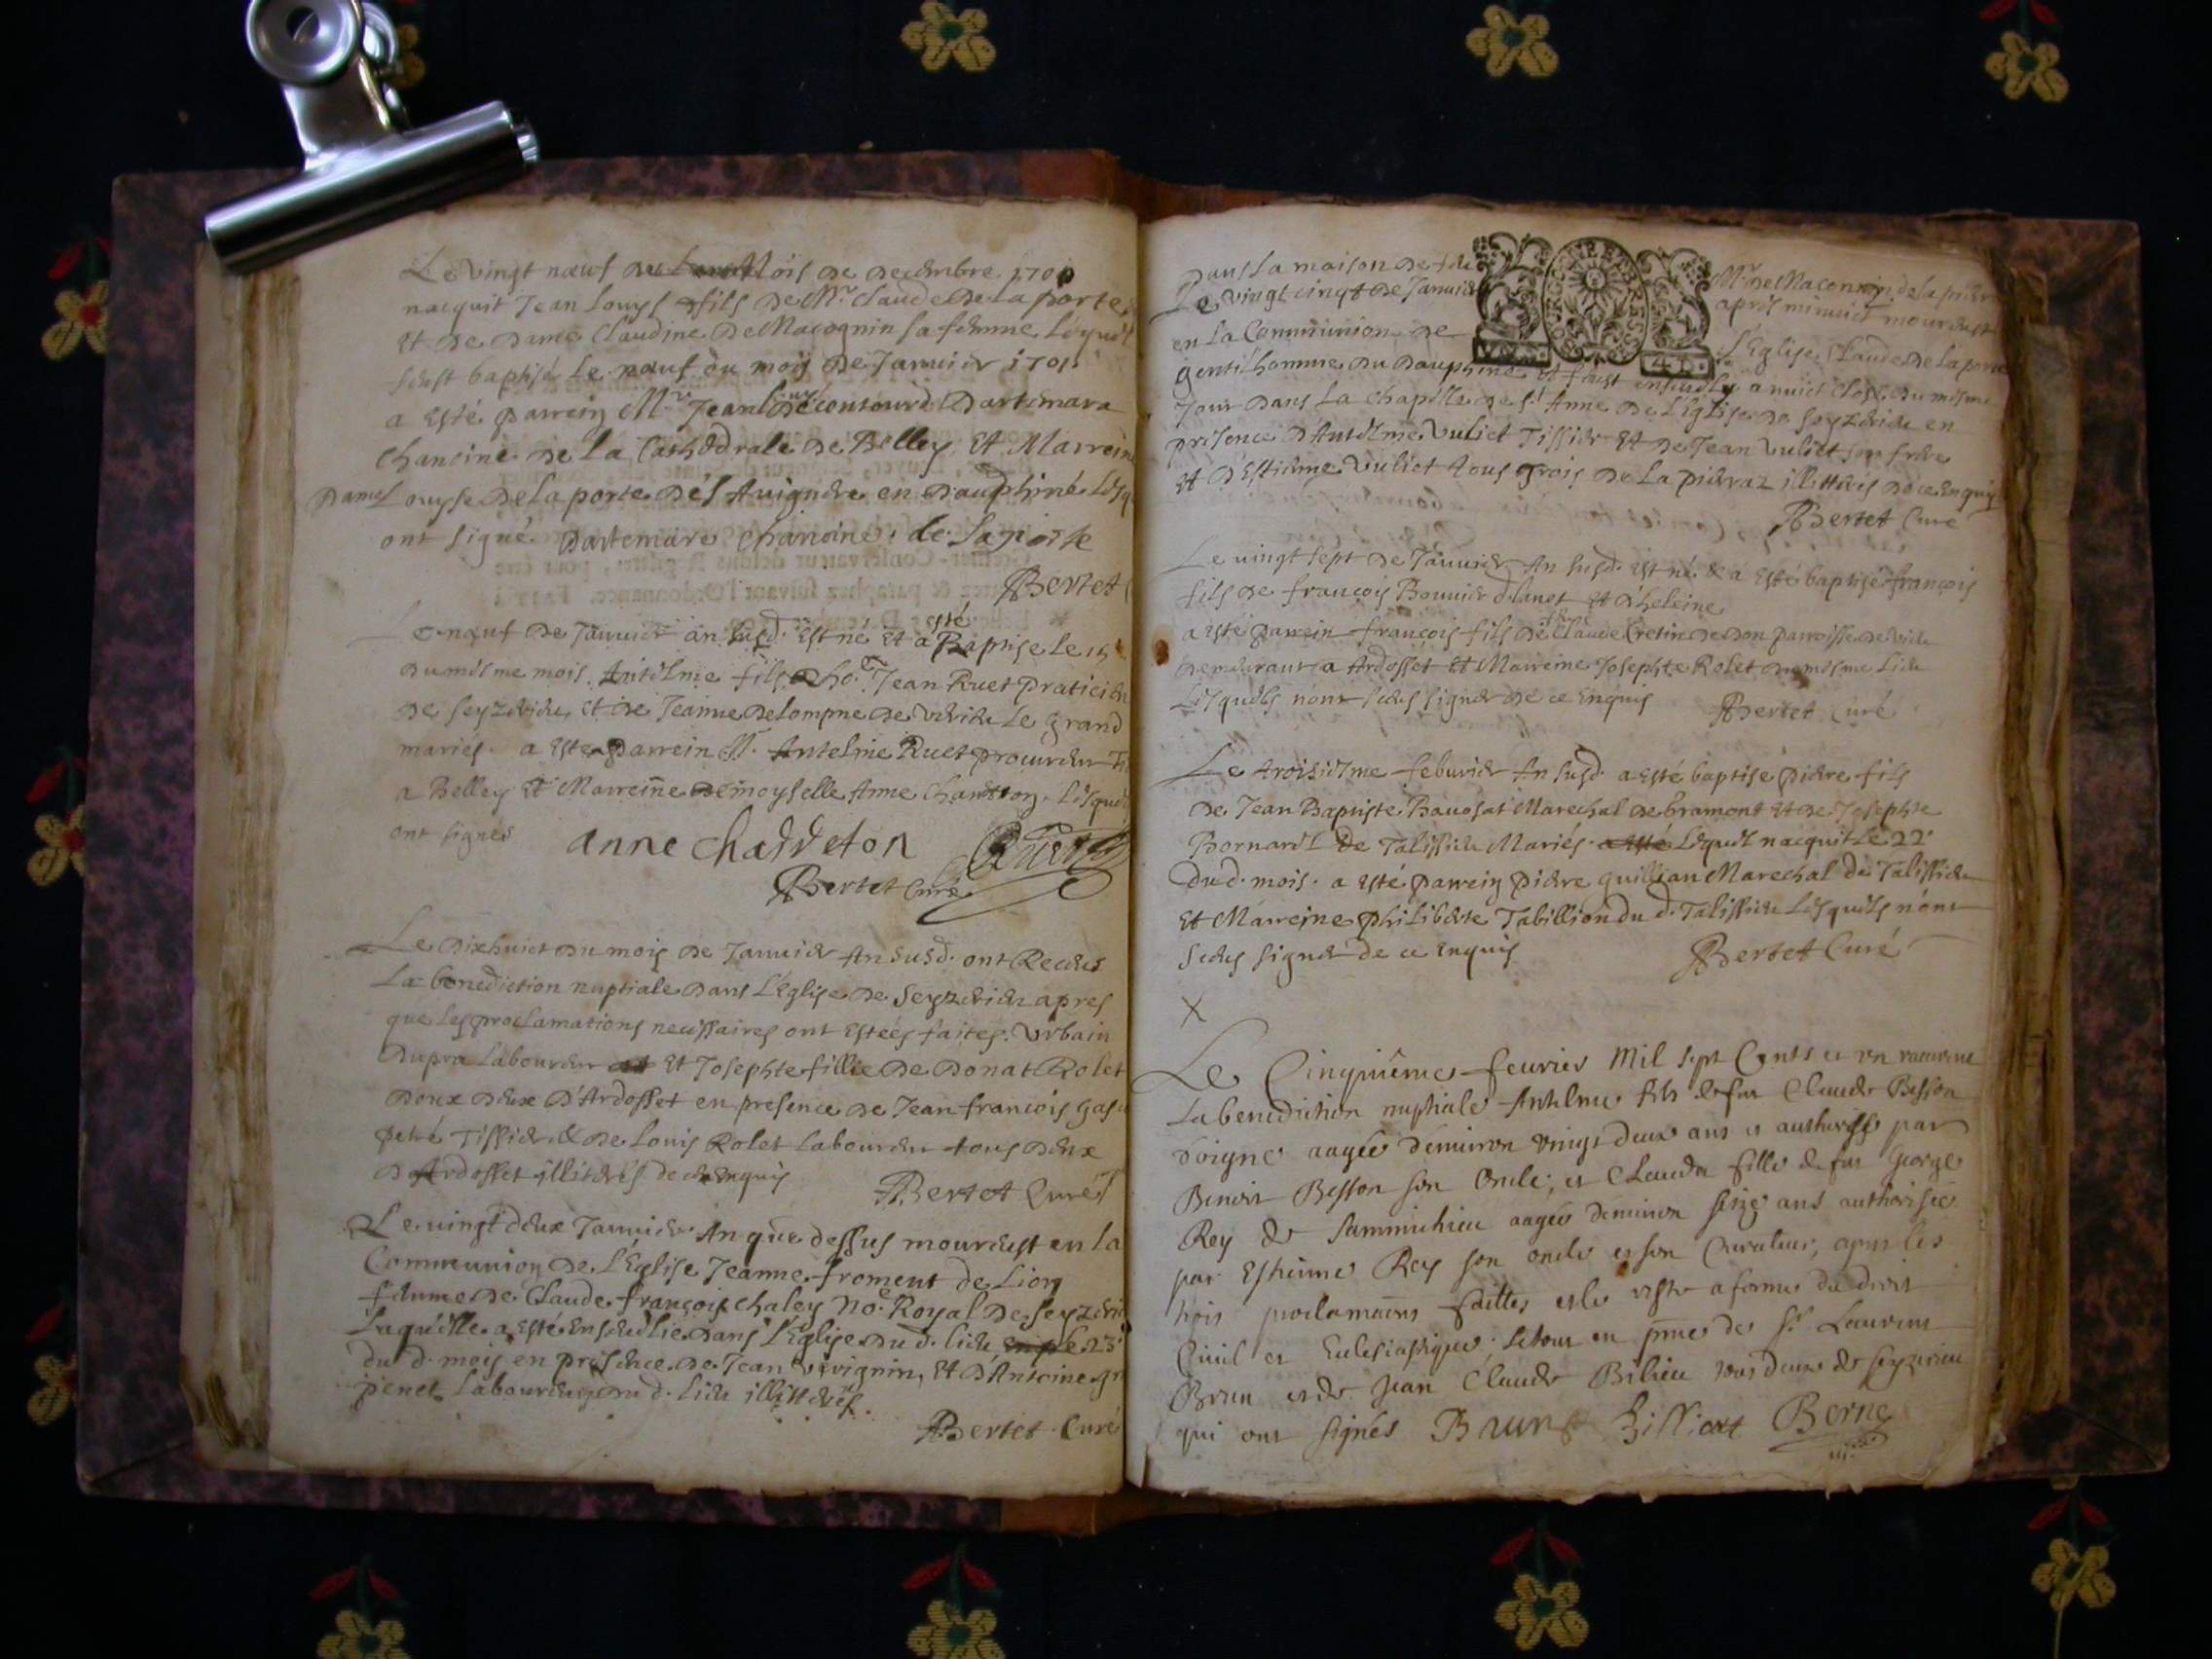 Le vingt nœuf du Mois de decembre 1700
nacquit Jean Louys fils de Mr. Claude de la porte
et de dame Claudine de Maconnin sa femme lequel
feust baptisé le nœuf du mois de Janvier 1701
a esté parrein Mr. Jean dartemara
Chanoine de la Cathedrale de Belley, et Marreine
Dame Louyse de la porte des Avignere en dauphiné lesq
ont signé. Dartemare Chanoine. de laporte
Bertet
Le nœuf de Janvier an susd. est né et a esté Baptise le 15
du mesme mois. Antelme fils de ho. Jean Ruet praticien
de seyzerieu, et de Jeanne delompne de virieu le grand
mariés. a esté parrein Sr. Antelme Ruet procureur
a Belley et Marreine demoyselle Anne Chadeton. lesquels
ont signés anne chadeton Ruet
Bertet Curé
Le dixhuict du mois de Janvier An susd. ont Receus
La benediction nuptiale dans L'Eglise de Seyzerieu apres
que les proclamations necessaires ont estées faites. Urbain
Dupra Laboureur et Josephte fillie de Donat Rolet
tous deux d'Ardosset en presence de Jean francois
Tissier & de Louis Rolet Laboureur tous deux
d'Ardosset illiteres de ce enquis
Bertet Curé
Le vingt deux Janvier An que dessus moureust en la
Communion de L'Eglise Jeanne froment de Lion
femme de Claude françois chaley no.re Royal de Seyzerieu
Laquelle a esté ensevelie dans l'Eglise du d. lieu le 23
du d. mois en presence de Jean vevignin, et d'Antoine
penet Laboureurs du d. lieu illitteres.
Bertet Curé
Dans la maison de Mr. de Maconnin de la pier
Le vingt cinq de Janvier apres minuict moureust
en la Communion de L'Eglise Claude de la porte
gentilhomme du dauphiné et feust ensevely a nuict close du mesme
Jour dans la Chapelle de st. Anne de l'Eglise de Seyzerieu en
presence d'Antelme Vuliet Tissier et de Jean Vuliet son frere
et d'Estienne Vuliet tous trois de la pierraz illitteres de ce enquis
Bertet Curé
Le vingt sept de Janvier An susd. est né & a esté baptisé françois
fils de françois Bouvier et d'heleine
a esté parrein françois fils de Claude Cretin de don parroisse de vieu
demeurant a Ardosset et Marreine Josephte Rolet du mesme lieu
Lesquels n'ont sceus signer de ce Enquis Bertet Curé
Le troisiesme febvrier An susd. a esté baptise piere fils
de Jean Baptiste Bavosat Marechal de bramont et de Josephte
Bornard de Talissieu Mariés. a esté Lequel nacquit le 22
du d. mois. a esté parrein piere guillian Marechal de Talissieu
et Marreine philiberte Tabillion du d. Talissieu Lesquels n'ont
sceus signer de ce enquis Bertet Curé
X
Le Cinquiême feuvrier Mil Sept Cents et un
La benediction nuptiale Antelme fils de feu Claude Besson
doigne aagée denviron vingt deux ans et authorisse par
Benoit Besson son Oncle; et Clauda fille de feu George
Rey de Sammichieu aagée denviron seize ans authorisée
par Estienne Rey son oncle et son Curateur, apres les
trois proclamations faittes et le reste a forme du droit
Civil et Eclesiastique; le tout en pnce de Sr. Laurent
Brun et de Jean Claude Bilieu tous deux de Seyzerieu
qui ont signés Brun Billiet Berne